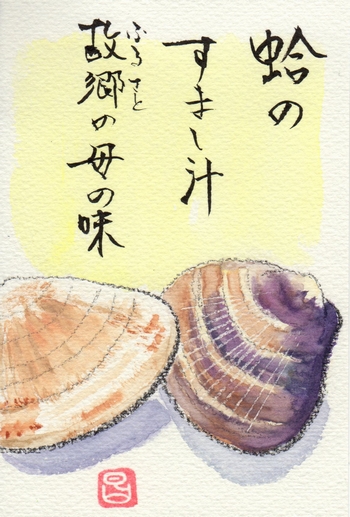 蛤の
すまし汁
故郷の母の味
ふるさと